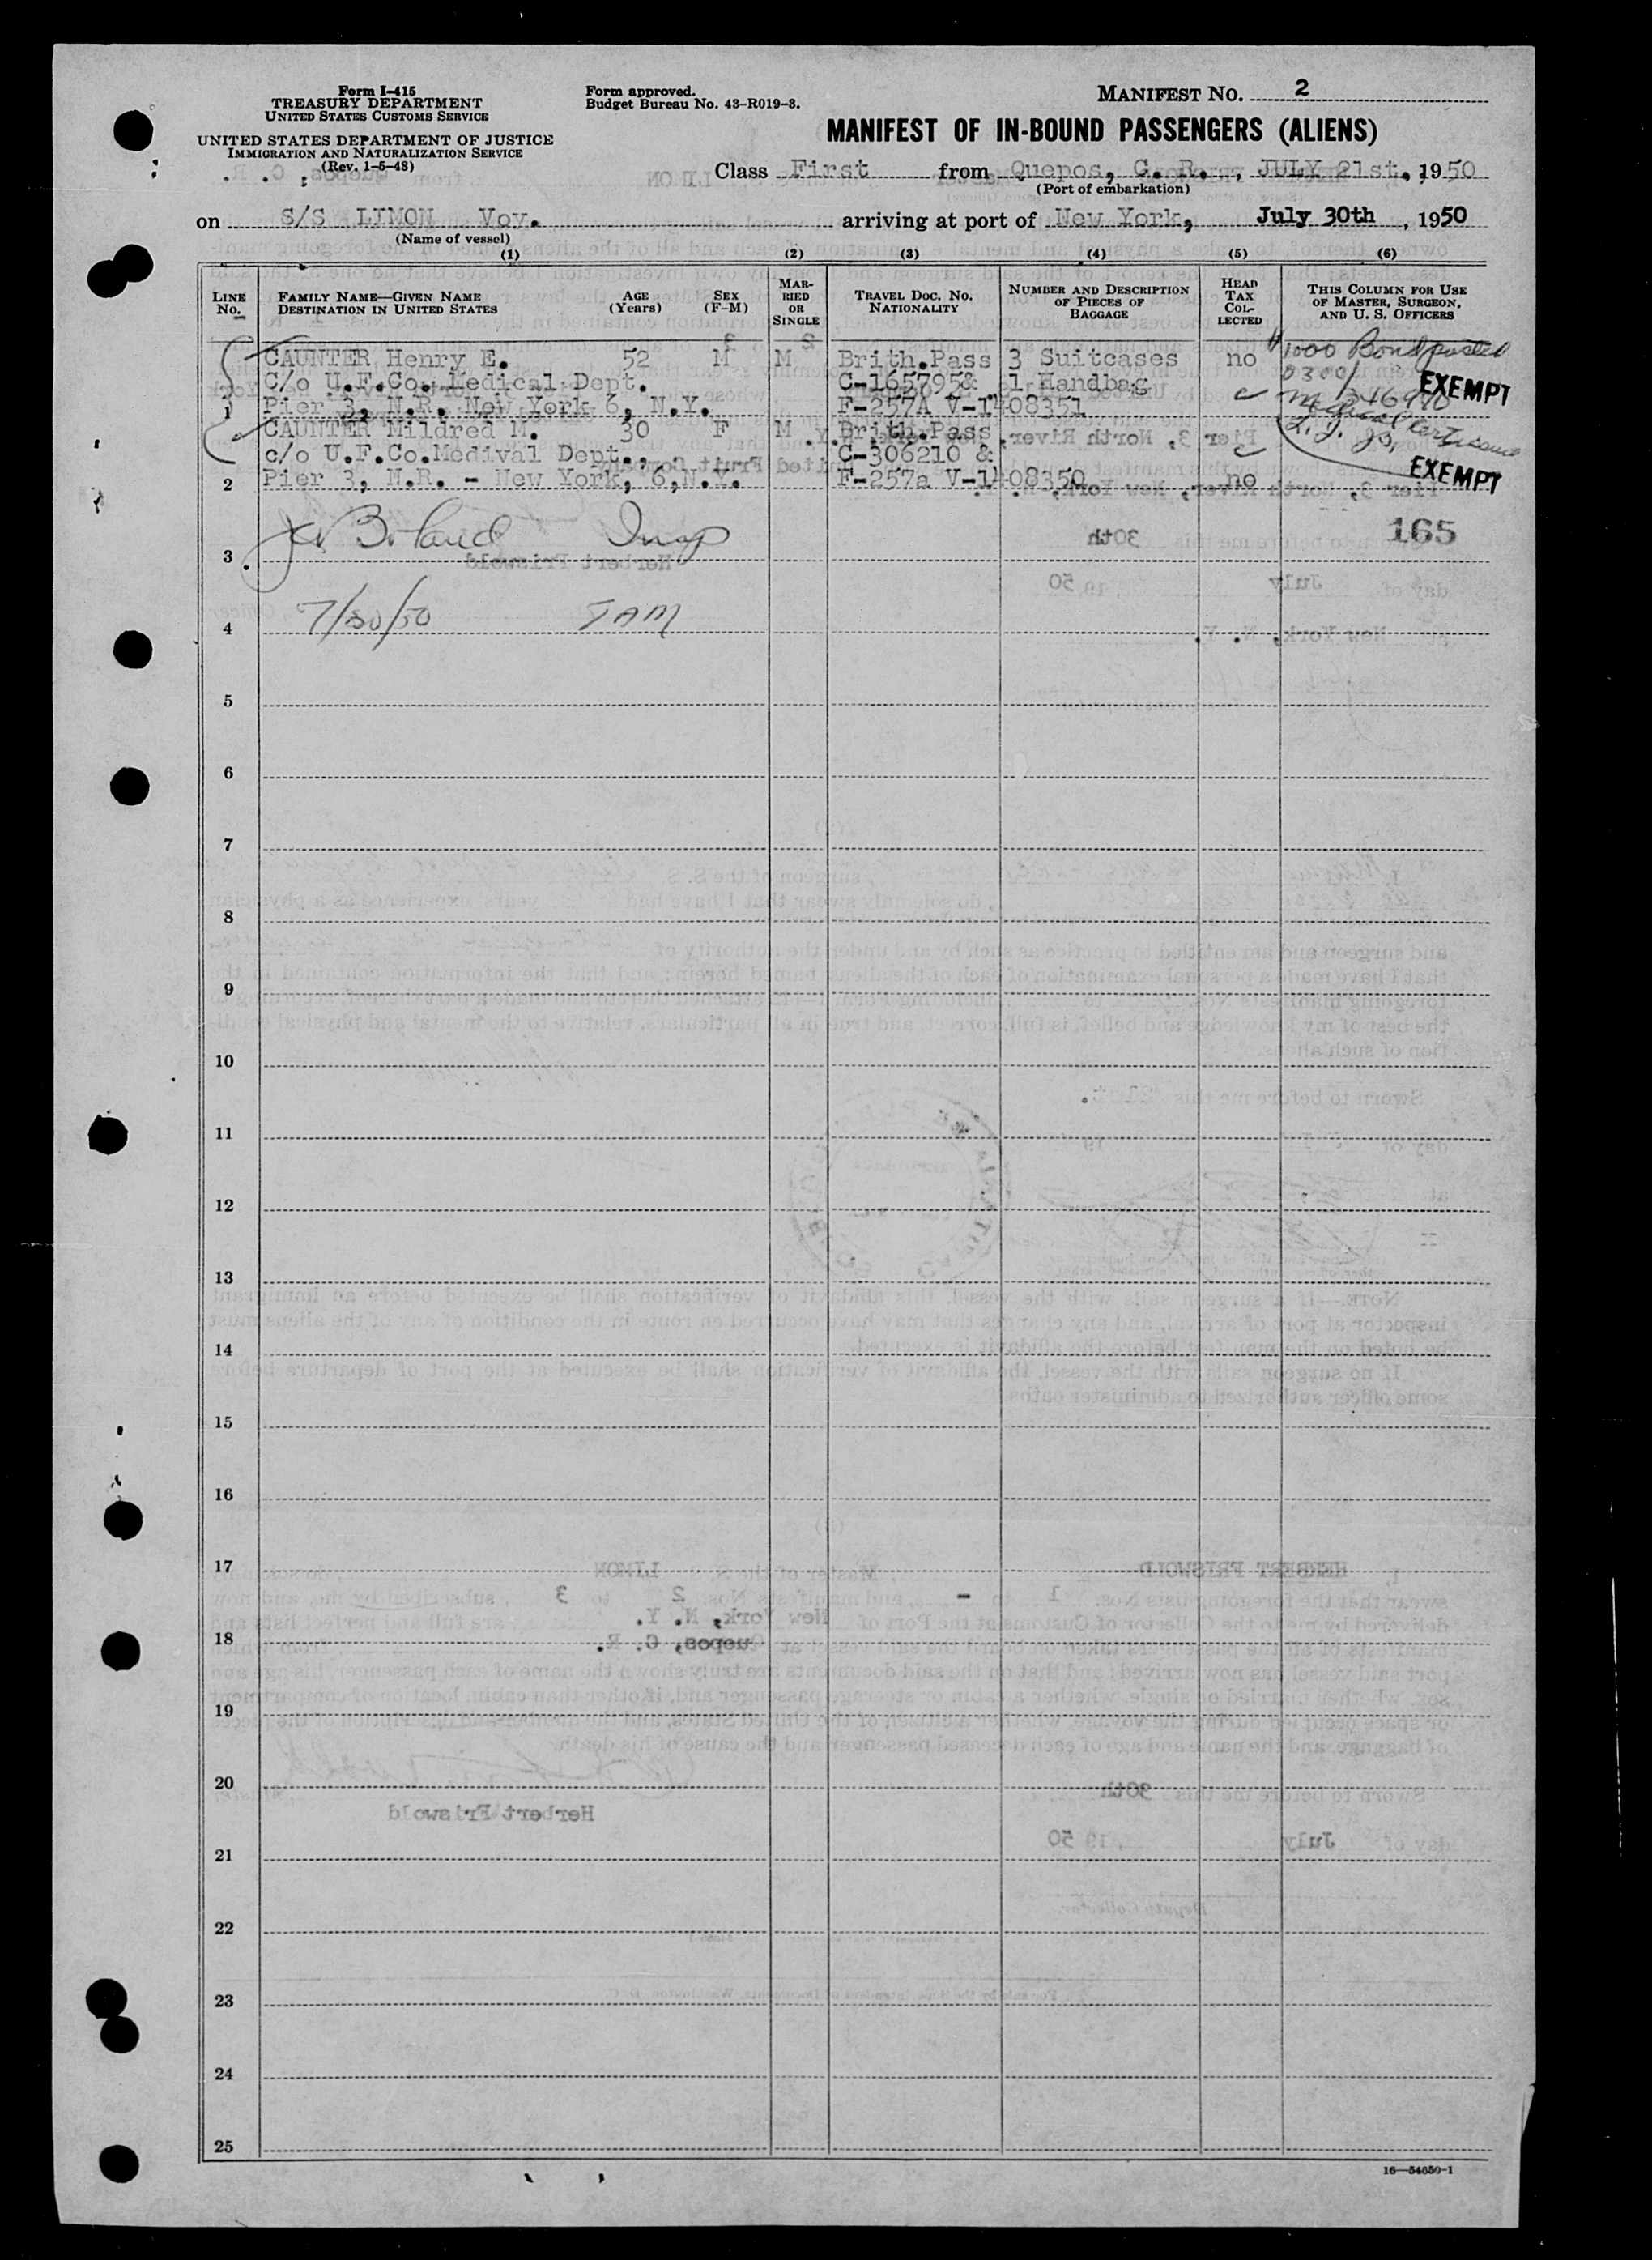 Form I-415
TREASURY DEPARTMENT
UNITED STATES CUSTOMS SERVICE
UNITED STATES DEPARTMENT OF JUSTICE
IMMIGRATION AND NATURALIZATION SERVICE
(Rev. 1-5-48)
Form approved.
Budget Bureau No. 43-R019-3.
MANIFEST NO. 2
MANIFEST OF IN-BOUND PASSENGERS (ALIENS)
Class First from Quepos, C. R., JULY 21st., 1950
(Port of embarkation)
on S/S LIMON Voy. arriving at port of New York, July 30th, 1950
(Name of vessel)
(1) (2) (3) (4) (5) (6)
LINE No.
FAMILY NAME—GIVEN NAME
DESTINATION IN UNITED STATES
AGE (Years)
SEX (F-M)
MARRIED OR SINGLE
TRAVEL DOC. NO. NATIONALITY
NUMBER AND DESCRIPTION OF PIECES OF BAGGAGE
HEAD TAX COLLECTED
THIS COLUMN FOR USE OF MASTER, SURGEON, AND U. S. OFFICERS
CAUNTER Henry E. 52 M M Brith.Pass 3 Suitcases no 1000 Bond posted
C/o U.F.Co. Medical Dept. C-165795& 1 Handbag 0300/ EXEMPT
1 Pier 3, N.R. New York 6, N.Y. F-257A V-1408351
CAUNTER Mildred M. 30 F M Brith.Pass
c/o U.F.Co.Medival Dept., C-306210 &
2 Pier 3, N.R. - New York, 6,N.Y. F-257a V-1408350 no EXEMPT
165
3
4 7/30/50
5
6
7
8
9
10
11
12
13
14
15
16
17
18
19
20
21
22
23
24
25
16—54650-1